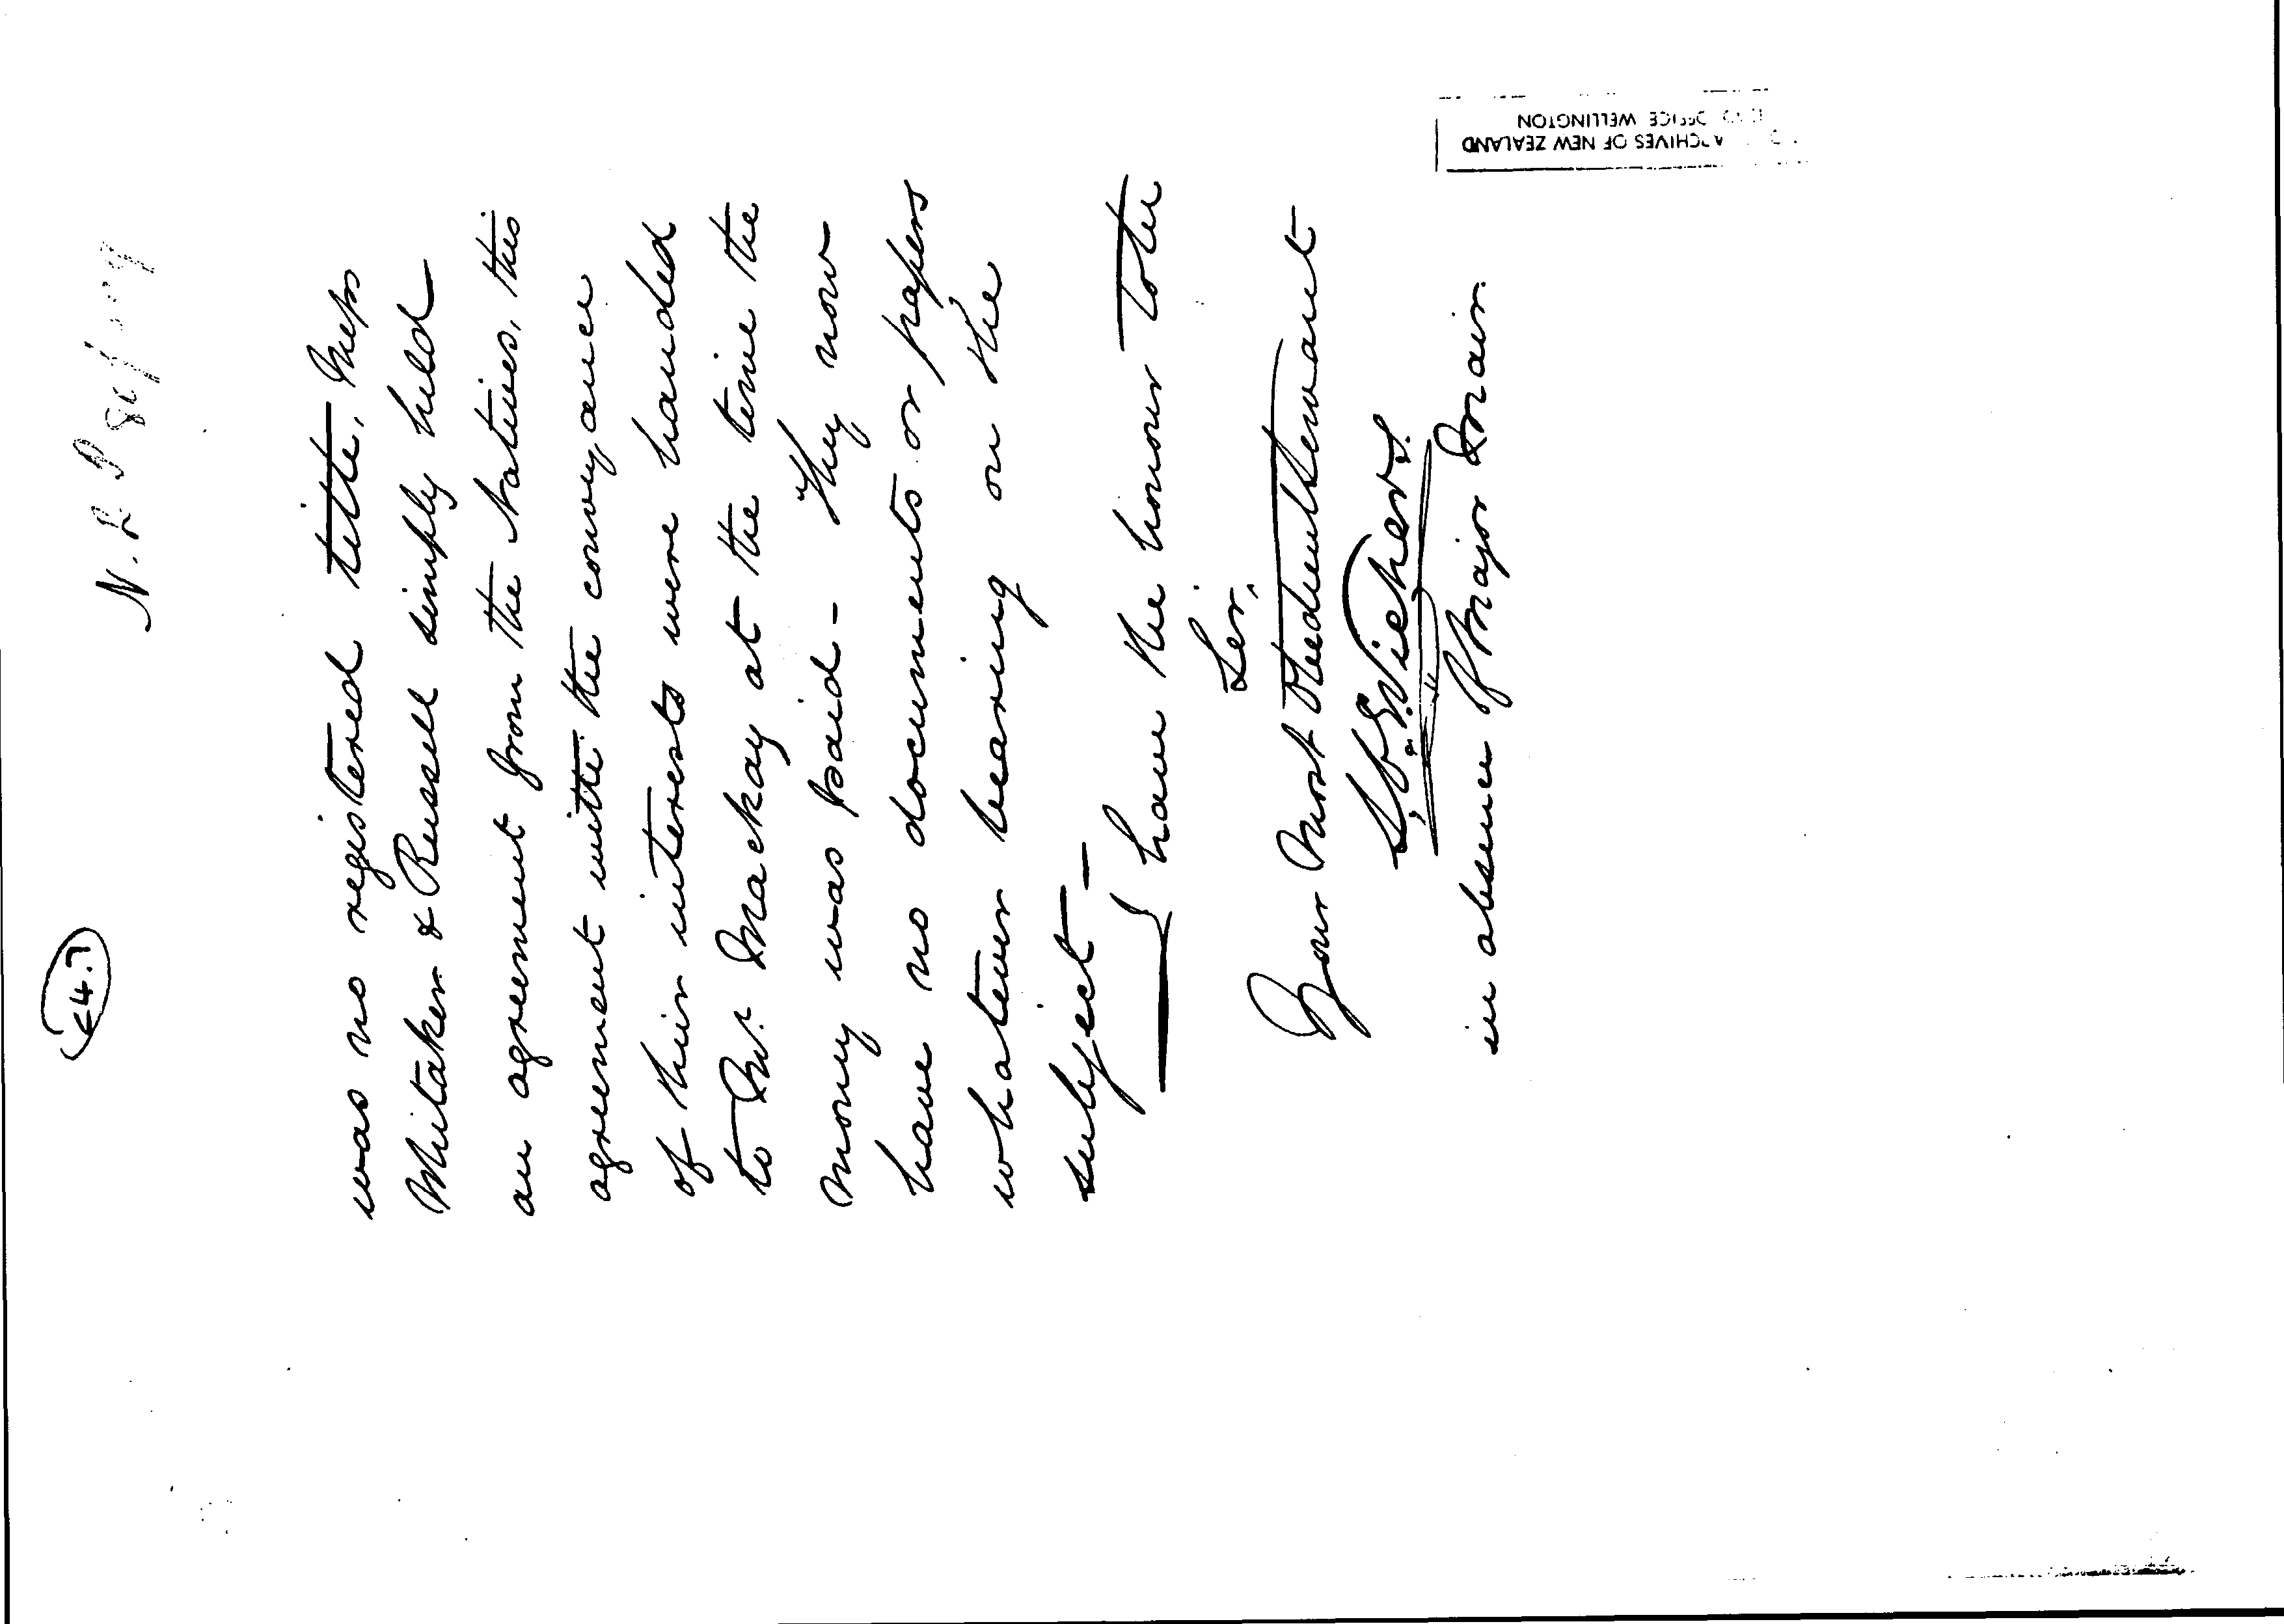 (47)
N. L. P
was no registered title, Messrs
Whitaker & Russell simply held
an agreement from the Natives, this
agreement with the conveyance
of their interests were handed
to Mr. Mackay at the time the
money was paid - They now
have no documents or papers
whatever bearing on the
subject -
I have the honour to be
Sir,
Your most obedient servant
in absence of Major Mair.
ARCHIVES OF NEW ZEALAND
OFFICE WELLINGTON